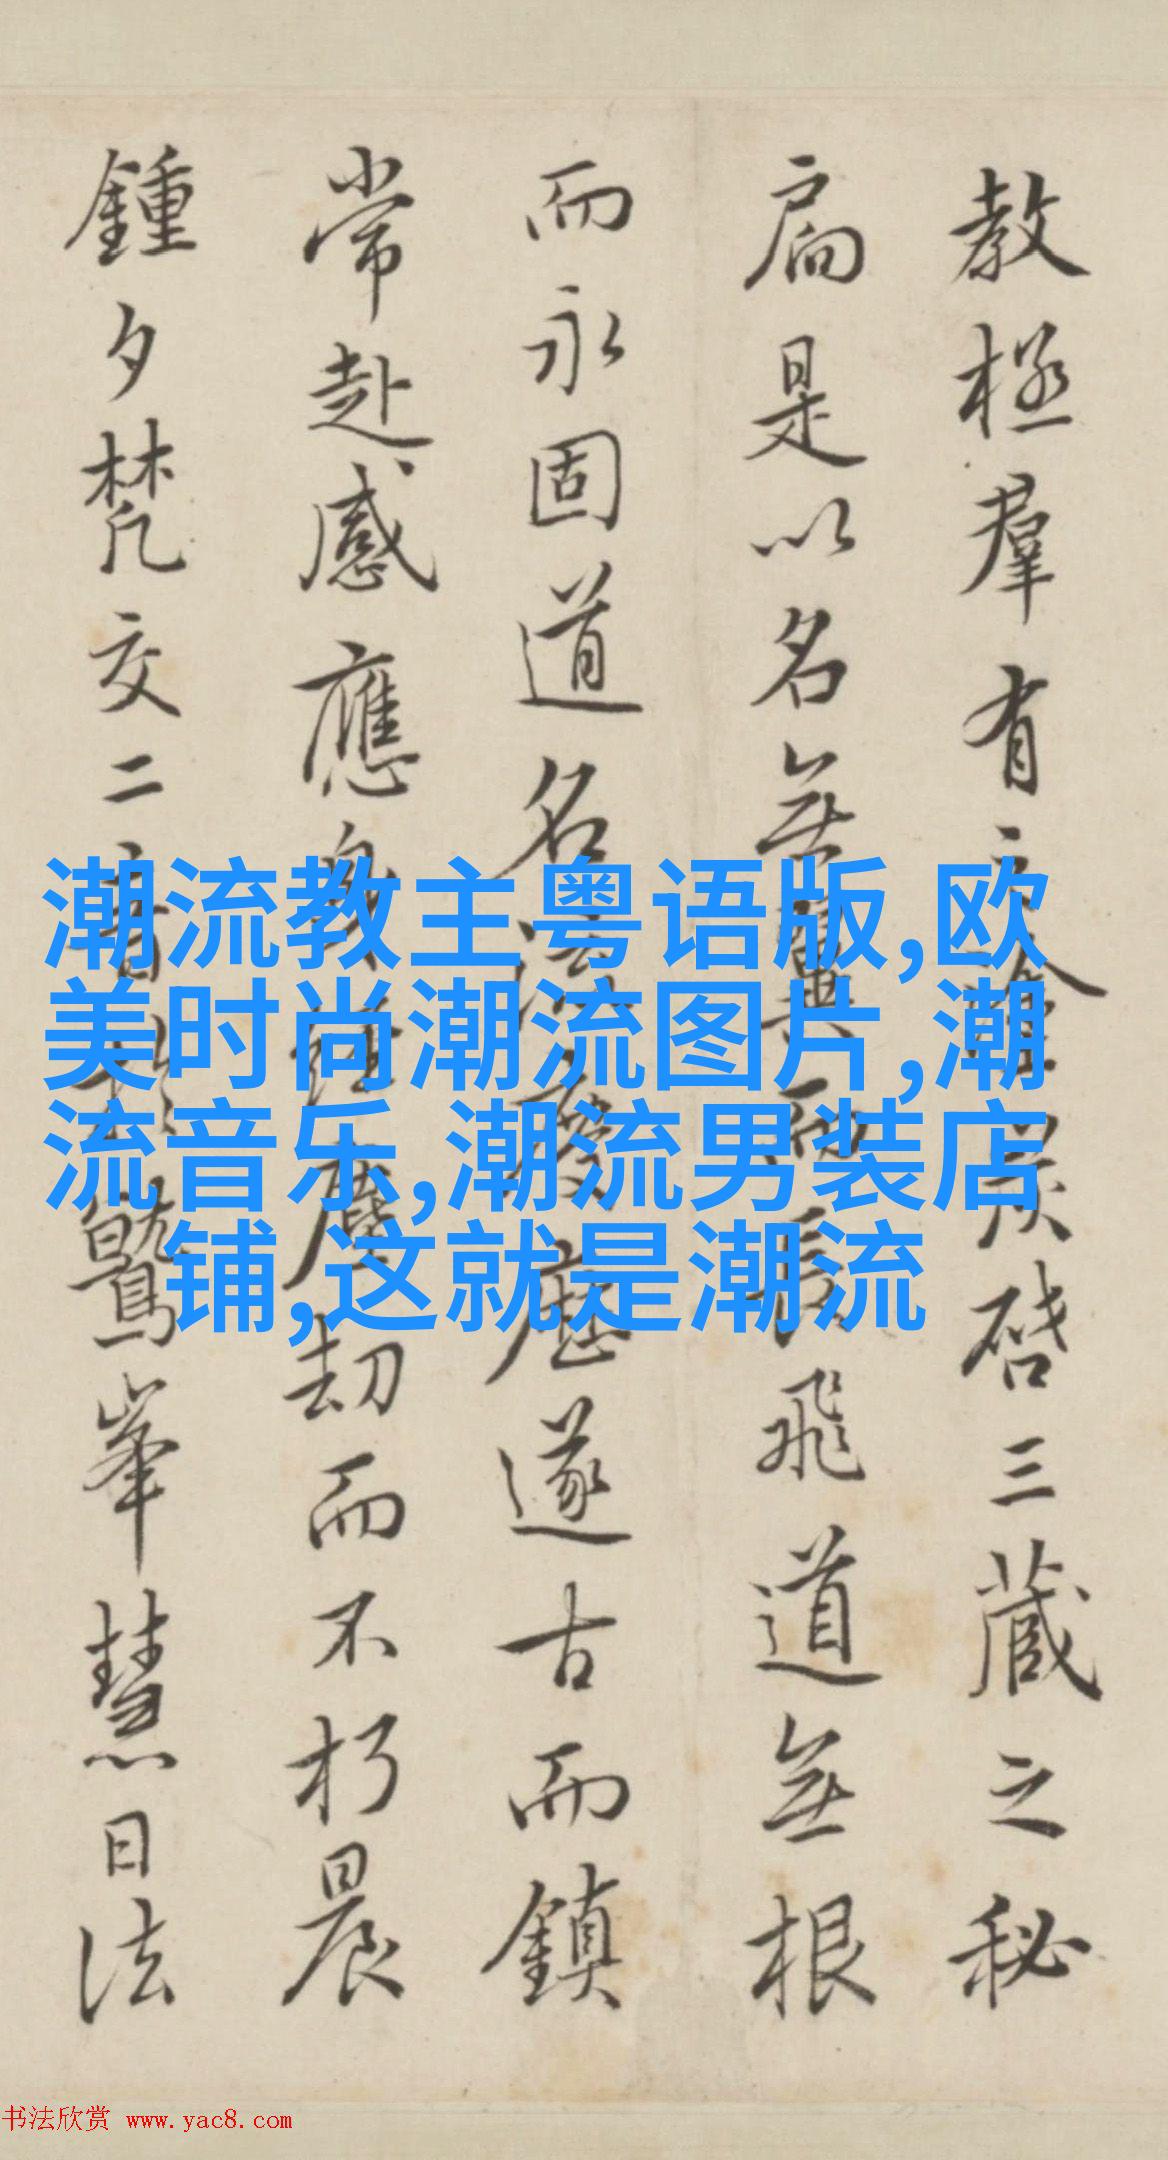 教極羣有之塗炭啓三藏之秘
扃是以名無翼而長飛道無根
而永固道名流慶歷遂古而鎮
常赴感應身經塵劫而不朽晨
鍾夕梵交二音於鷲峯慧日法
潮流教主粤语版,欧
美时尚潮流图片,潮
流音乐,潮流男装店
铺,这就是潮流
书法欣赏 www.yac8.com